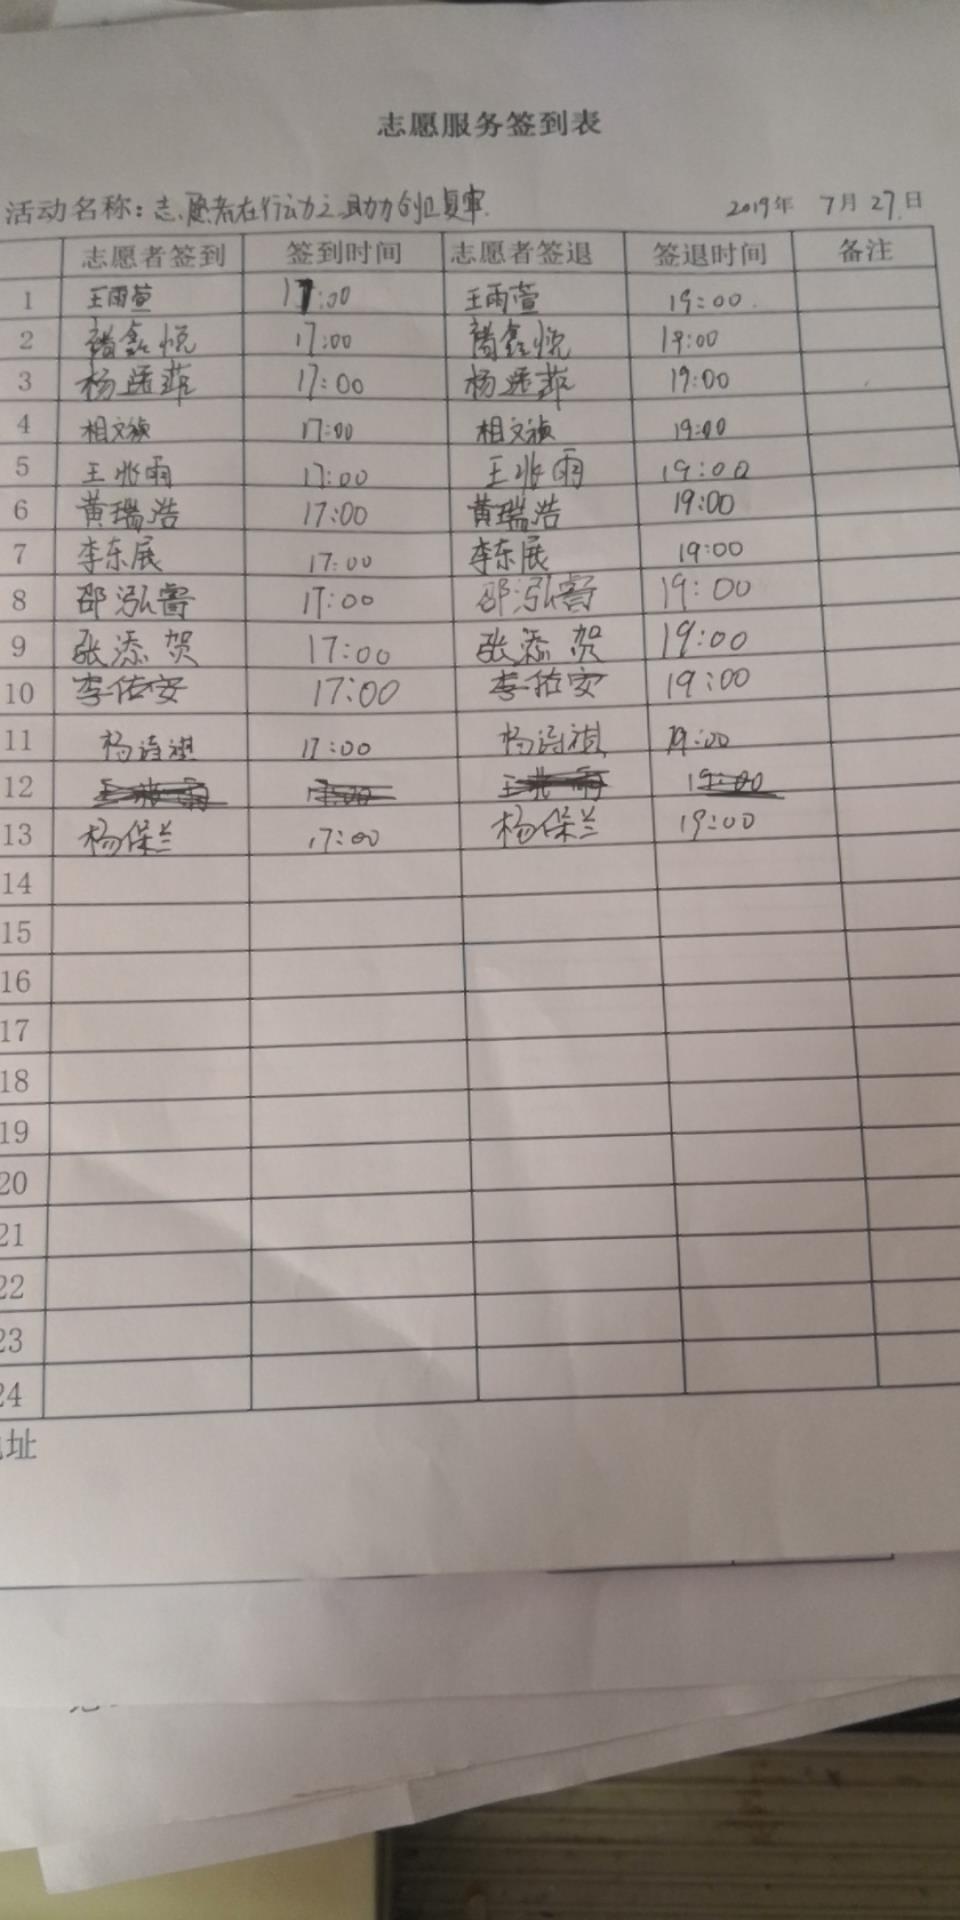 志愿服务签到表
活动名称：志愿者在行动之助力创卫复审 2019年 7月27日
志愿者签到 签到时间 志愿者签退 签退时间 备注
1 王雨萱 17:00 王雨萱 19:00
2 褚鑫悦 17:00 褚鑫悦 19:00
3 杨 菲 17:00 杨 菲 19:00
4 相文祯 17:00 相文祯 19:00
5 王兆雨 17:00 王兆雨 19:00
6 黄瑞浩 17:00 黄瑞浩 19:00
7 李东展 17:00 李东展 19:00
8 邵泓睿 17:00 邵泓睿 19:00
9 张添贺 17:00 张添贺 19:00
10 李佑安 17:00 李佑安 19:00
11 杨诗祺 17:00 杨诗祺 19:00
12 王兆雨 17:00 王兆雨 19:00
13 杨保兰 17:00 杨保兰 19:00
14
15
16
17
18
19
20
21
22
23
24
址